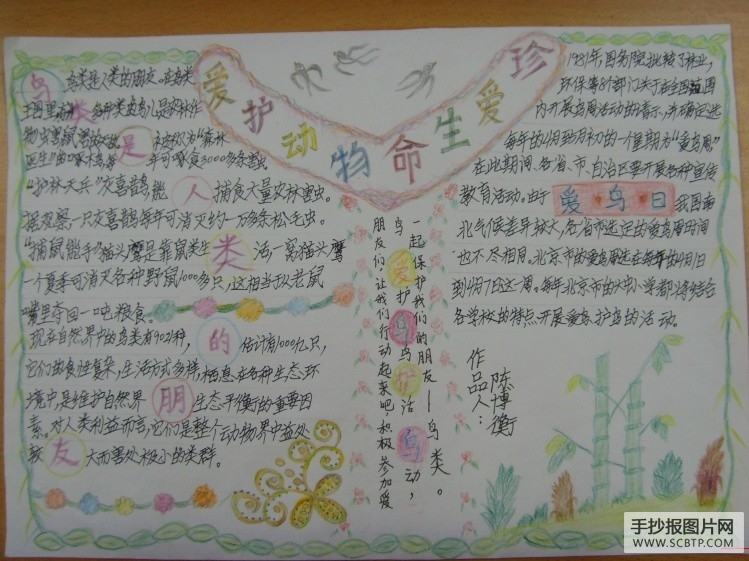 爱护动物命生爱珍
鸟类是人类的朋友
"护林天兵"灰喜鹊能捕食大量农林害虫。
据观察一只灰喜鹊每年可消灭约一万多条松毛虫。
"捕鼠能手"猫头鹰是靠鼠类生活一窝猫头鹰
一个夏季可消灭各种野鼠1000多只,这相当于从老鼠
嘴里夺回一吨粮食。
现在自然界中的鸟类有9021种,估计有1000亿只,
它们的食性复杂,生活方式多样,栖息在各种生态环
境中,是维护自然界生态平衡的重要因
素。对人类利益而言,它们是整个动物界中益处
较大而害处极小的类群。
朋友们,让我们行动起来吧,积极参加爱
鸟爱护鸟护活鸟动,
一起保护我们的朋友—鸟类。
1981年,国务院批转了林业,
环保等8个部门关于在全国范围
内开展鸟周活动的请示,并确定选
每年的4月到5月初的一个星期为"爱鸟周"
在此期间,各省、市、自治区要开展各种宣传
教育活动。由于 爱鸟日 我国南
北气候差异较大,各省市选定的爱鸟周时间
也不尽相同。北京市的爱鸟周选在每年的4月1日
到4月7日这一周。每年北京市的大中小学都将结合
各学校的特点开展爱鸟护鸟的活动。
作品人:
陈博衡
手抄报图片网
WWW.SCBTP.COM